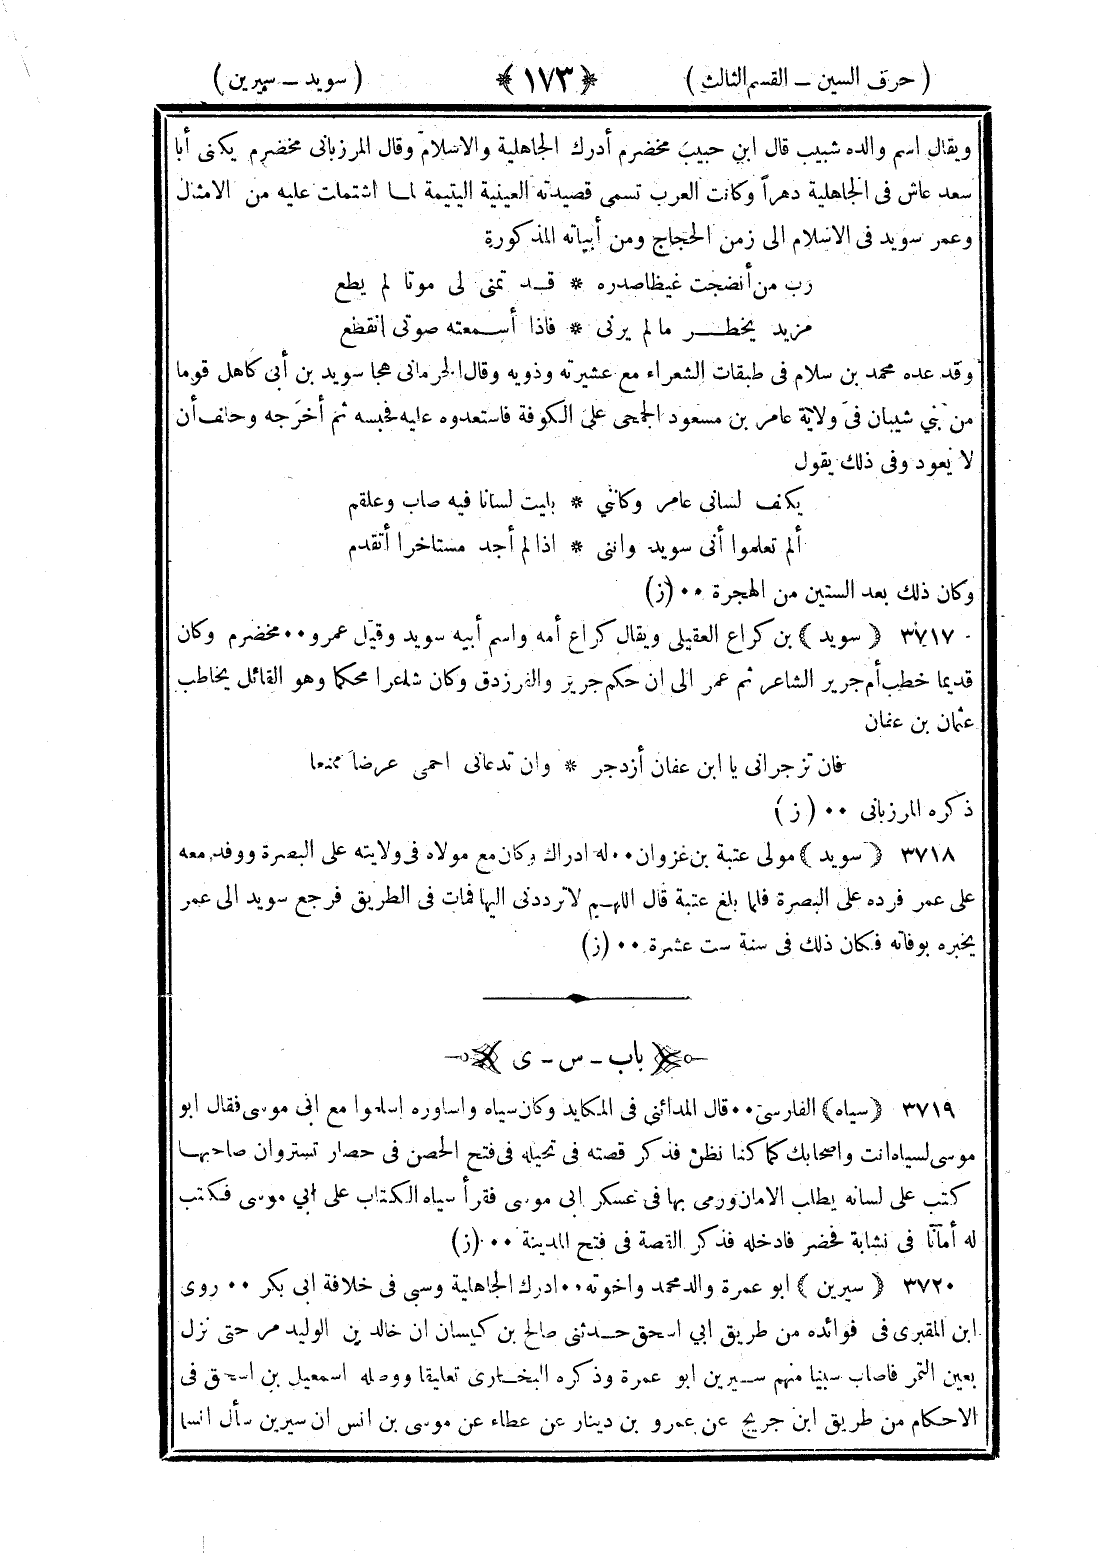 ( حرف السين ــ القسم الثالث ) ﴿ ١٧٣ ﴾ ( سويد ــ سيرين )
ويقال اسم والده شبيب قال ابن حبيب مخضرم أدرك الجاهلية والاسلام وقال المرزبانى مخضرم يكنى أبا
سعد عاش فى الجاهلية دهراً وكانت العرب تسمى قصيدته العينية اليتيمة لما اشتملت عليه من الامثال
وعمر سويد فى الاسلام الى زمن الحجاج ومن أبياته المذكورة
رب من أنضجت غيظا صدره * قد تمنى لى موتا لم يطع
مزيد يخطر ما لم يرنى * فاذا أسمعته صوتى انقطع
وقد عده محمد بن سلام فى طبقات الشعراء مع عشيرته وذويه وقال الحرمانى هجا سويد بن أبى كاهل قوما
من بني شيبان فى ولاية عامر بن مسعود الجمحى على الكوفة فاستعدوه عليه فحبسه ثم أخرجه وحلف أن
لا يعود وفى ذلك يقول
يكف لسانى عامر وكأنني * بليت لسانا فيه صاب وعلقم
ألم تعلموا أنى سويد واننى * اذا لم أجد مستاخرا أتقدم
وكان ذلك بعد الستين من الهجرة ٠٠ (ز)
٣٧١٧ ﴿ سويد ﴾ بن كراع العقيلى ويقال كراع أمه واسم أبيه سويد وقيل عمرو ٠٠ مخضرم وكان
قديما خطب أم جرير الشاعر ثم عمر الى ان حكم جرير والفرزدق وكان شاعرا محكما وهو القائل يخاطب
عثمان بن عفان
فان تزجرانى يا ابن عفان أزدجر * وان تدعانى احمى عرضا ممنعا
ذكره المرزبانى ٠٠ ( ز )
٣٧١٨ ﴿ سويد ﴾ مولى عتبة بن غزوان ٠٠ له ادراك وكان مع مولاه فى ولايته على البصرة ووفد معه
على عمر فرده على البصرة فلما بلغ عتبة قال اللهم لا ترددنى اليها فمات فى الطريق فرجع سويد الى عمر
يخبره بوفاته فكان ذلك فى سنة ست عشرة ٠٠ (ز)
باب ــ س ــ ى
٣٧١٩ ﴿سياه﴾ الفارسى ٠٠ قال المدائنى فى المكايد وكان سياه واساوره اسلموا مع ابى موسى فقال ابو
موسى لسياه انت واصحابك كما كنا نظن فذكر قصته فى تحيله فى فتح الحصن فى حصار تستروان صاحبها
كتب على لسانه يطلب الامان ورمى بها فى عسكر ابى موسى فقرأ سياه الكتاب على ابي موسى فكتب
له أمانا فى نشابة فحضر فادخله فذكر القصة فى فتح المدينة ٠٠ (ز)
٣٧٢٠ ﴿ سيرين ﴾ ابو عمرة والد محمد واخوته ٠٠ ادرك الجاهلية وسبى فى خلافة ابى بكر ٠٠ روى
ابن المقبرى فى فوائده من طريق ابي اسحق حدثنى صالح بن كيسان ان خالد بن الوليد مر حتى نزل
بعين التمر فاصاب سبيا منهم سيرين ابو عمرة وذكره البخارى تعليقا ووصله اسمعيل بن اسحق فى
الاحكام من طريق ابن جريج عن عمرو بن دينار عن عطاء عن موسى بن انس ان سيرين سأل انسا